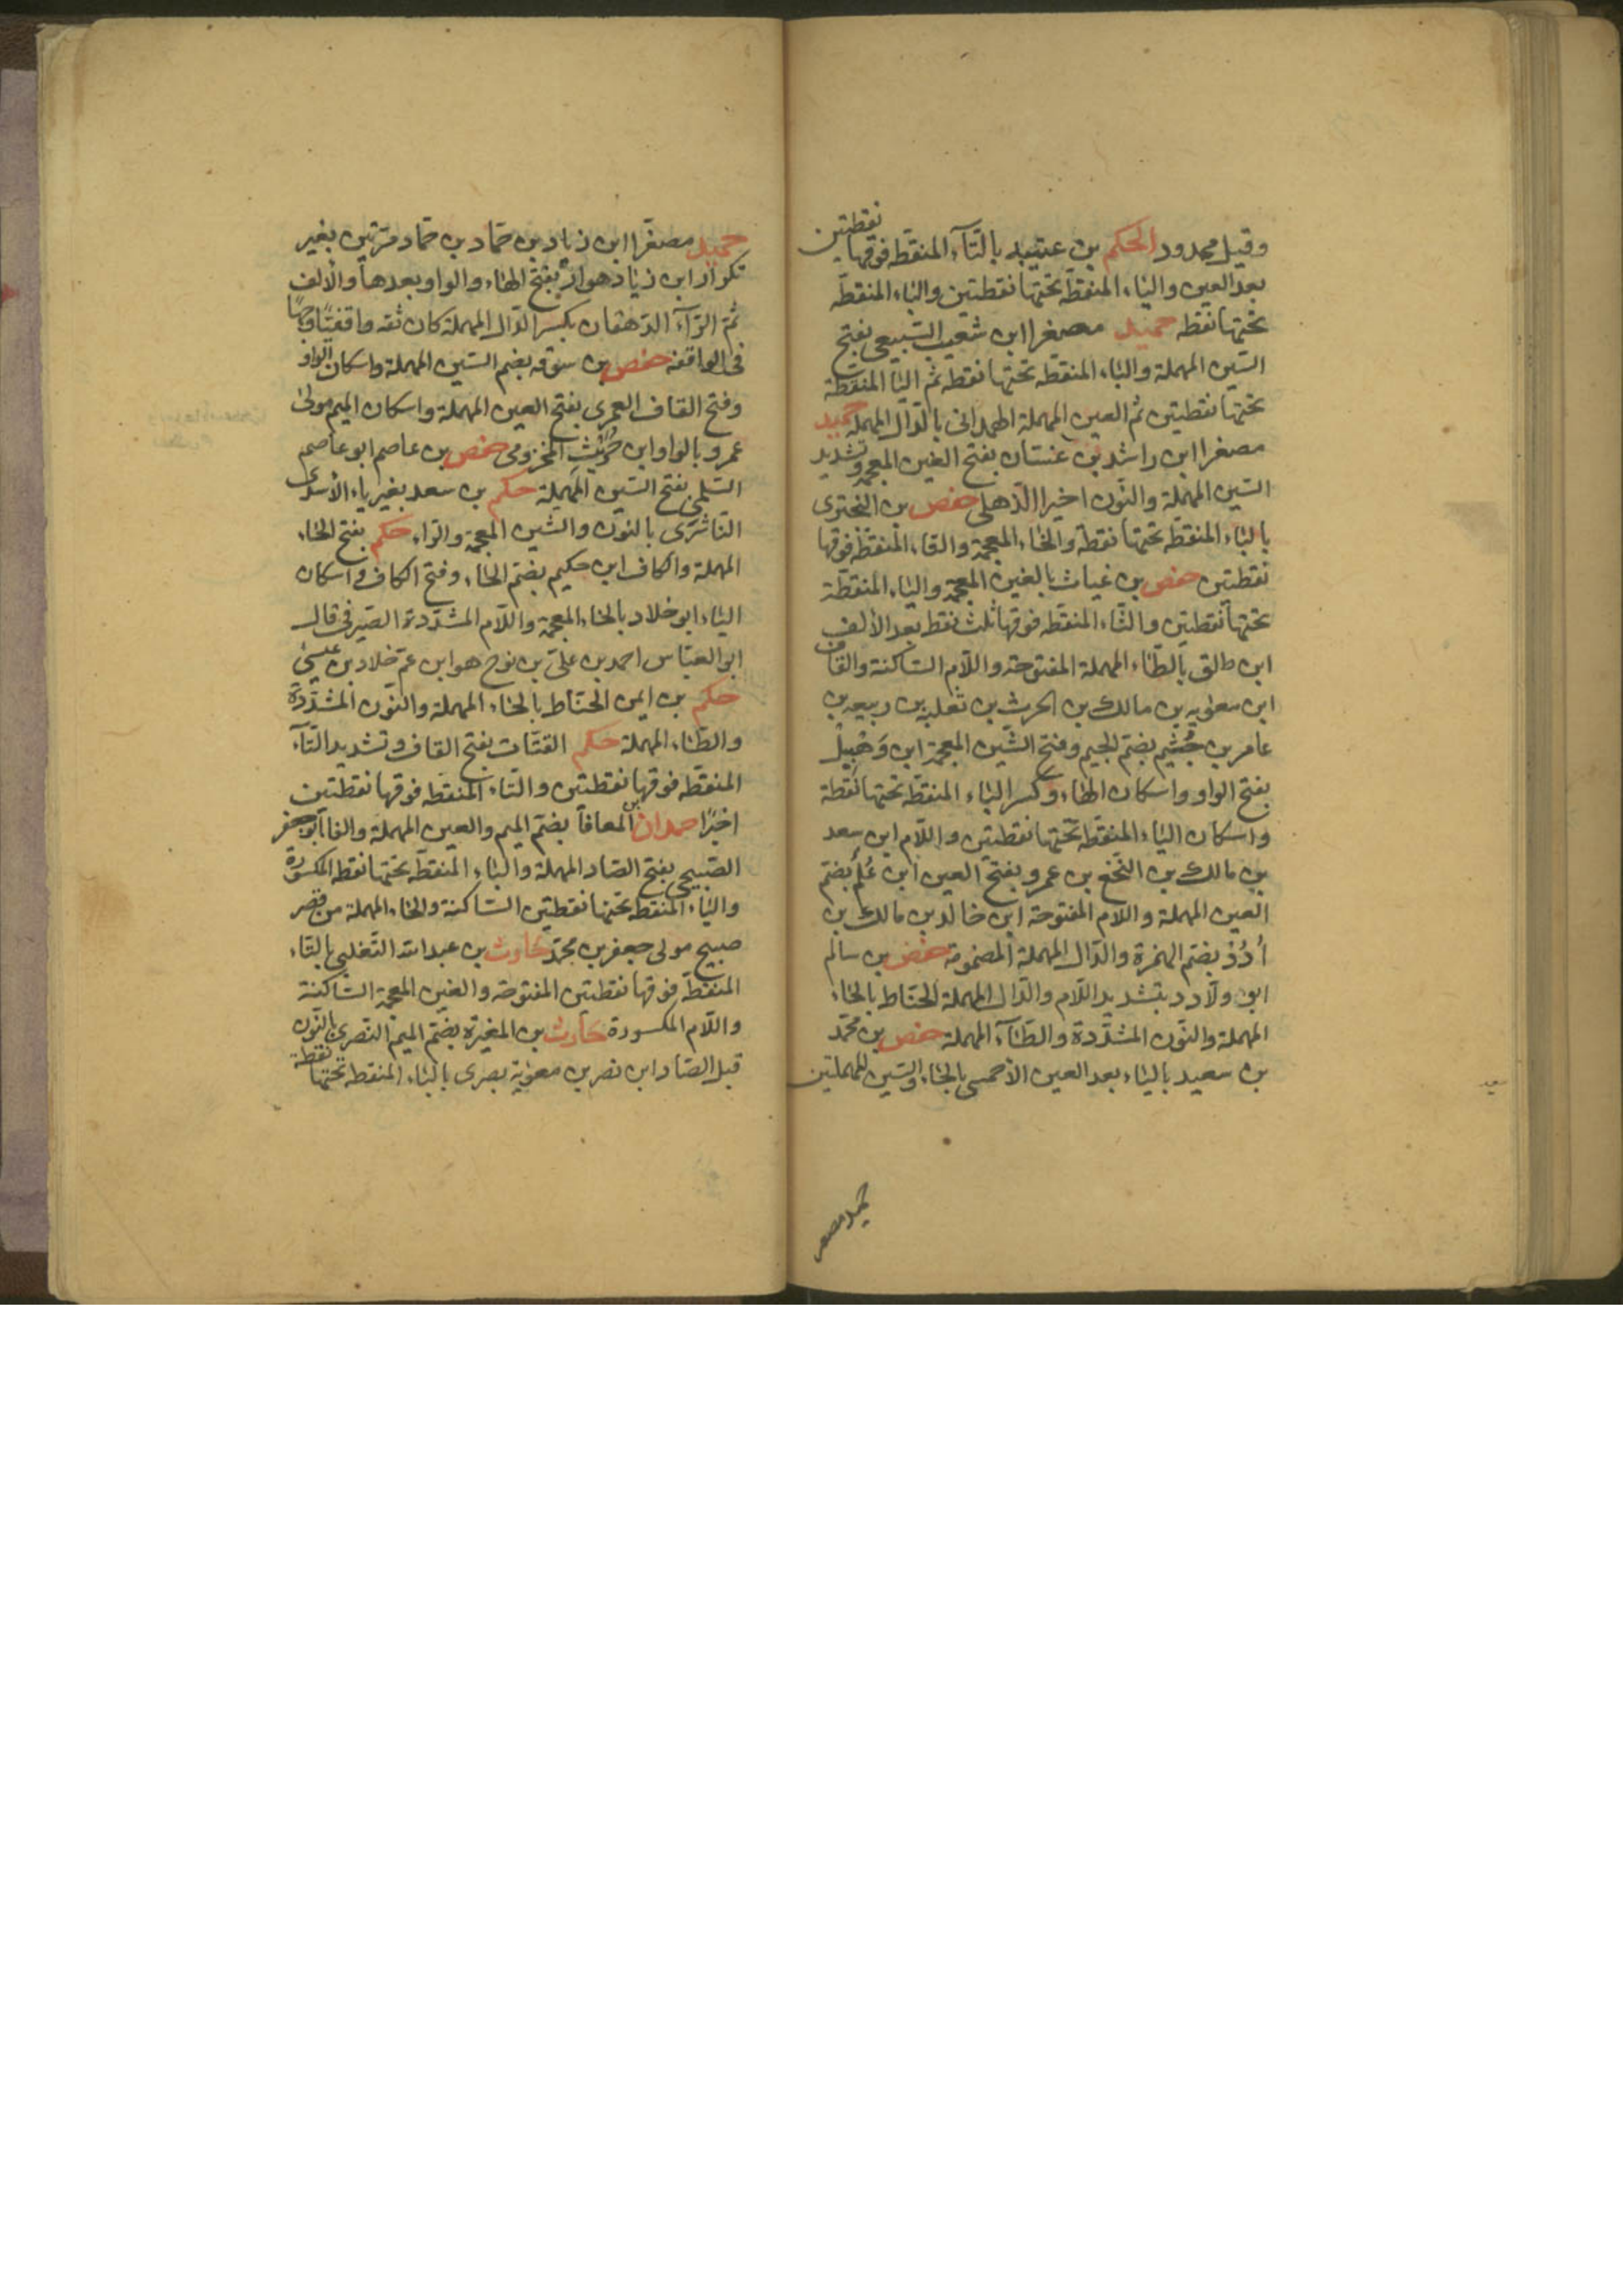 وقيل محدود الحكم بن عتيبه بالتّآء المنقّطه فوقها نقطتين
بعد العين والياء المنقطّه تحتها نقطتين والباء المنقطّه
تحتها نقطه حميد مصغرا ابن شعيب السّبيعى بفتح
السّين المهملة والباء المنقطّه تحتها نقطه ثم اليآ المنقّطة
تحتها نقطتين ثم العين المهملة الهمدانى بالدّال المهملة حميد
مصغرا ابن راشد بن غسّان بفتح الغين المعجمة وتشديد
السّين المهملة والنّون اخيرا الذّهلى حفص بن البخترى
بالباء المنقطّه تحتها نقطة والخاء المعجمة والتاء المنقطّه فوقها
نقطتين حفص بن غياث بالغين المعجمة والياء المنقطّة
تحتها نقطتين والثّاء المنقّطه فوقها ثلث نقط بعد الألف
ابن طلق بالطّاء المهملة المفتوحة واللّام السّاكنة والقاف
ابن معٰوية بن مالك بن الحرث بن ثعلبه بن ربيعه بن
عامر بن جُشَم بضمّ الجيم وفتح الشّين المعجمة ابن وَهْبِيْل
بفتح الواو واسكان الهاء وكسر الباء المنقطّه تحتها نقطة
واسكان الياء المنقّطه تحتها نقطتين واللّام ابن سعد
بن مالك بن النّخع بن عمرو بفتح العين ابن عُلَه بضمّ
العين المهملة واللّام المفتوحة ابن خالد بن مالك بن
اُدُدْ بضم الهمزة والدّال المهملة المضمومة حفص بن سالم
ابو ولّاد د بتشديد اللّام والدّال المهملة الحنّاط بالحاء
المهملة والنّون المشدّدة والطّآء المهملة حفص بن محمّد
بن سعيد بالياء بعد العين الأحمسى بالحاء والسّين المهملتين
سعيد
حميد مصغر
حميد مصغّرا ابن زياد بن حمّاد بن حمّاد مرّتين بغير
تكرار ابن زياد هوار بفتح الهاء والواو بعدها والألف
ثمّ الرّآء الدّهقان بكسر الدّال المهملة كان ثقه واقفيّا وجهًا
فى الواقفه حفص بن سوقه بضم السّين المهملة واسكان الواو
وفتح القاف العمرى بفتح العين المهملة واسكان الميم مولى
عمرو بالواو ابن حُرَيْث المخزومى حفص بن عاصم ابو عاصم
السّلمى بفتح السّين المهملة حكم بن سعد بغير ياء الأسدى
النّاشرى بالنون والشين المعجمة والرّاء حكم بفتح الحاء
المهملة والكاف ابن حكيم بضمّ الحاء وفتح الكاف واسكان
الياء ابو خلاد بالخاء المعجمة واللّام المشدّدة الصّيرفى قال
ابو العبّاس احمد بن علىّ بن نوح هو ابن عمّ خلاد بن عيسى
حكم بن ايمن الحنّاط بالحاء المهملة والنّون المشدّدة
والطّاء المهملة حكم القتّات بفتح القاف وتشديد التّآء
المنقّطه فوقها نقطتين والتّاء المنقّطه فوقها نقطتين
اخيرًا حمدان بن المعافا بضمّ الميم والعين المهملة والفا ابو جعفر
الصّبيحى بفتح الصّاد المهملة والباء المنقطّه تحتها نقطه المكسورة
والياء المنقطه تحتها نقطتين السّاكنة والحاء المهملة من قصر
صبيح مولى جعفر بن محمّد حارث بن عبد الله التّغلبى بالتّاء
المنقّطة فوقها نقطتين المفتوحة والغين المعجمة السّاكنة
واللّام المكسورة حارث بن المغيرة بضمّ الميم النّصرى بالنّون
قبل الصّاد ابن نصر بن معٰوية بصرى بالباء المنقطه تحتها نقطة